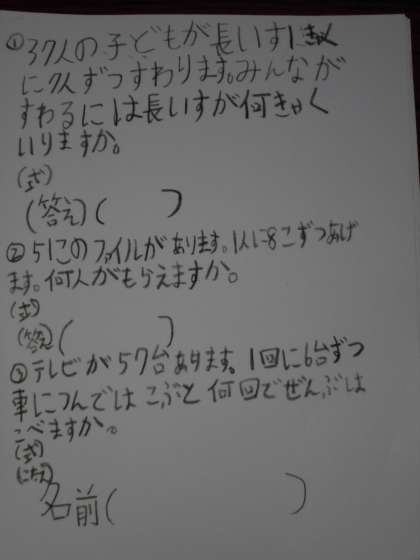 ①37人の子どもが長いす1きゃく
に7人ずつすわります。みんなが
すわるには長いすが何きゃく
いりますか。
(式)
(答え)(　　)
②51このファイルがあります。1人に8こずつあげ
ます。何人がもらえますか。
(式)
(答え)(　　)
③テレビが57台あります。1回に6台ずつ
車につんでは こぶと 何回でぜんぶは
こべますか。
(式)
(こたえ)
名前(　　)